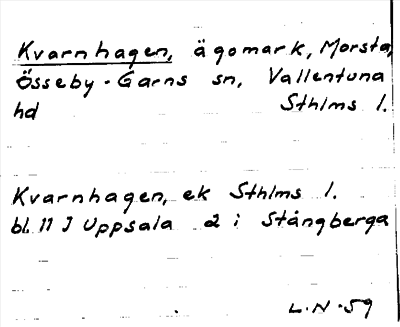 Kvarnhagen, ägomark, Morsta,
Össeby-Garns sn, Vallentuna
hd Sthlms l.
Kvarnhagen, ek Sthlms l.
bl. 11 J Uppsala 2 i Stångberga
L.N.-59